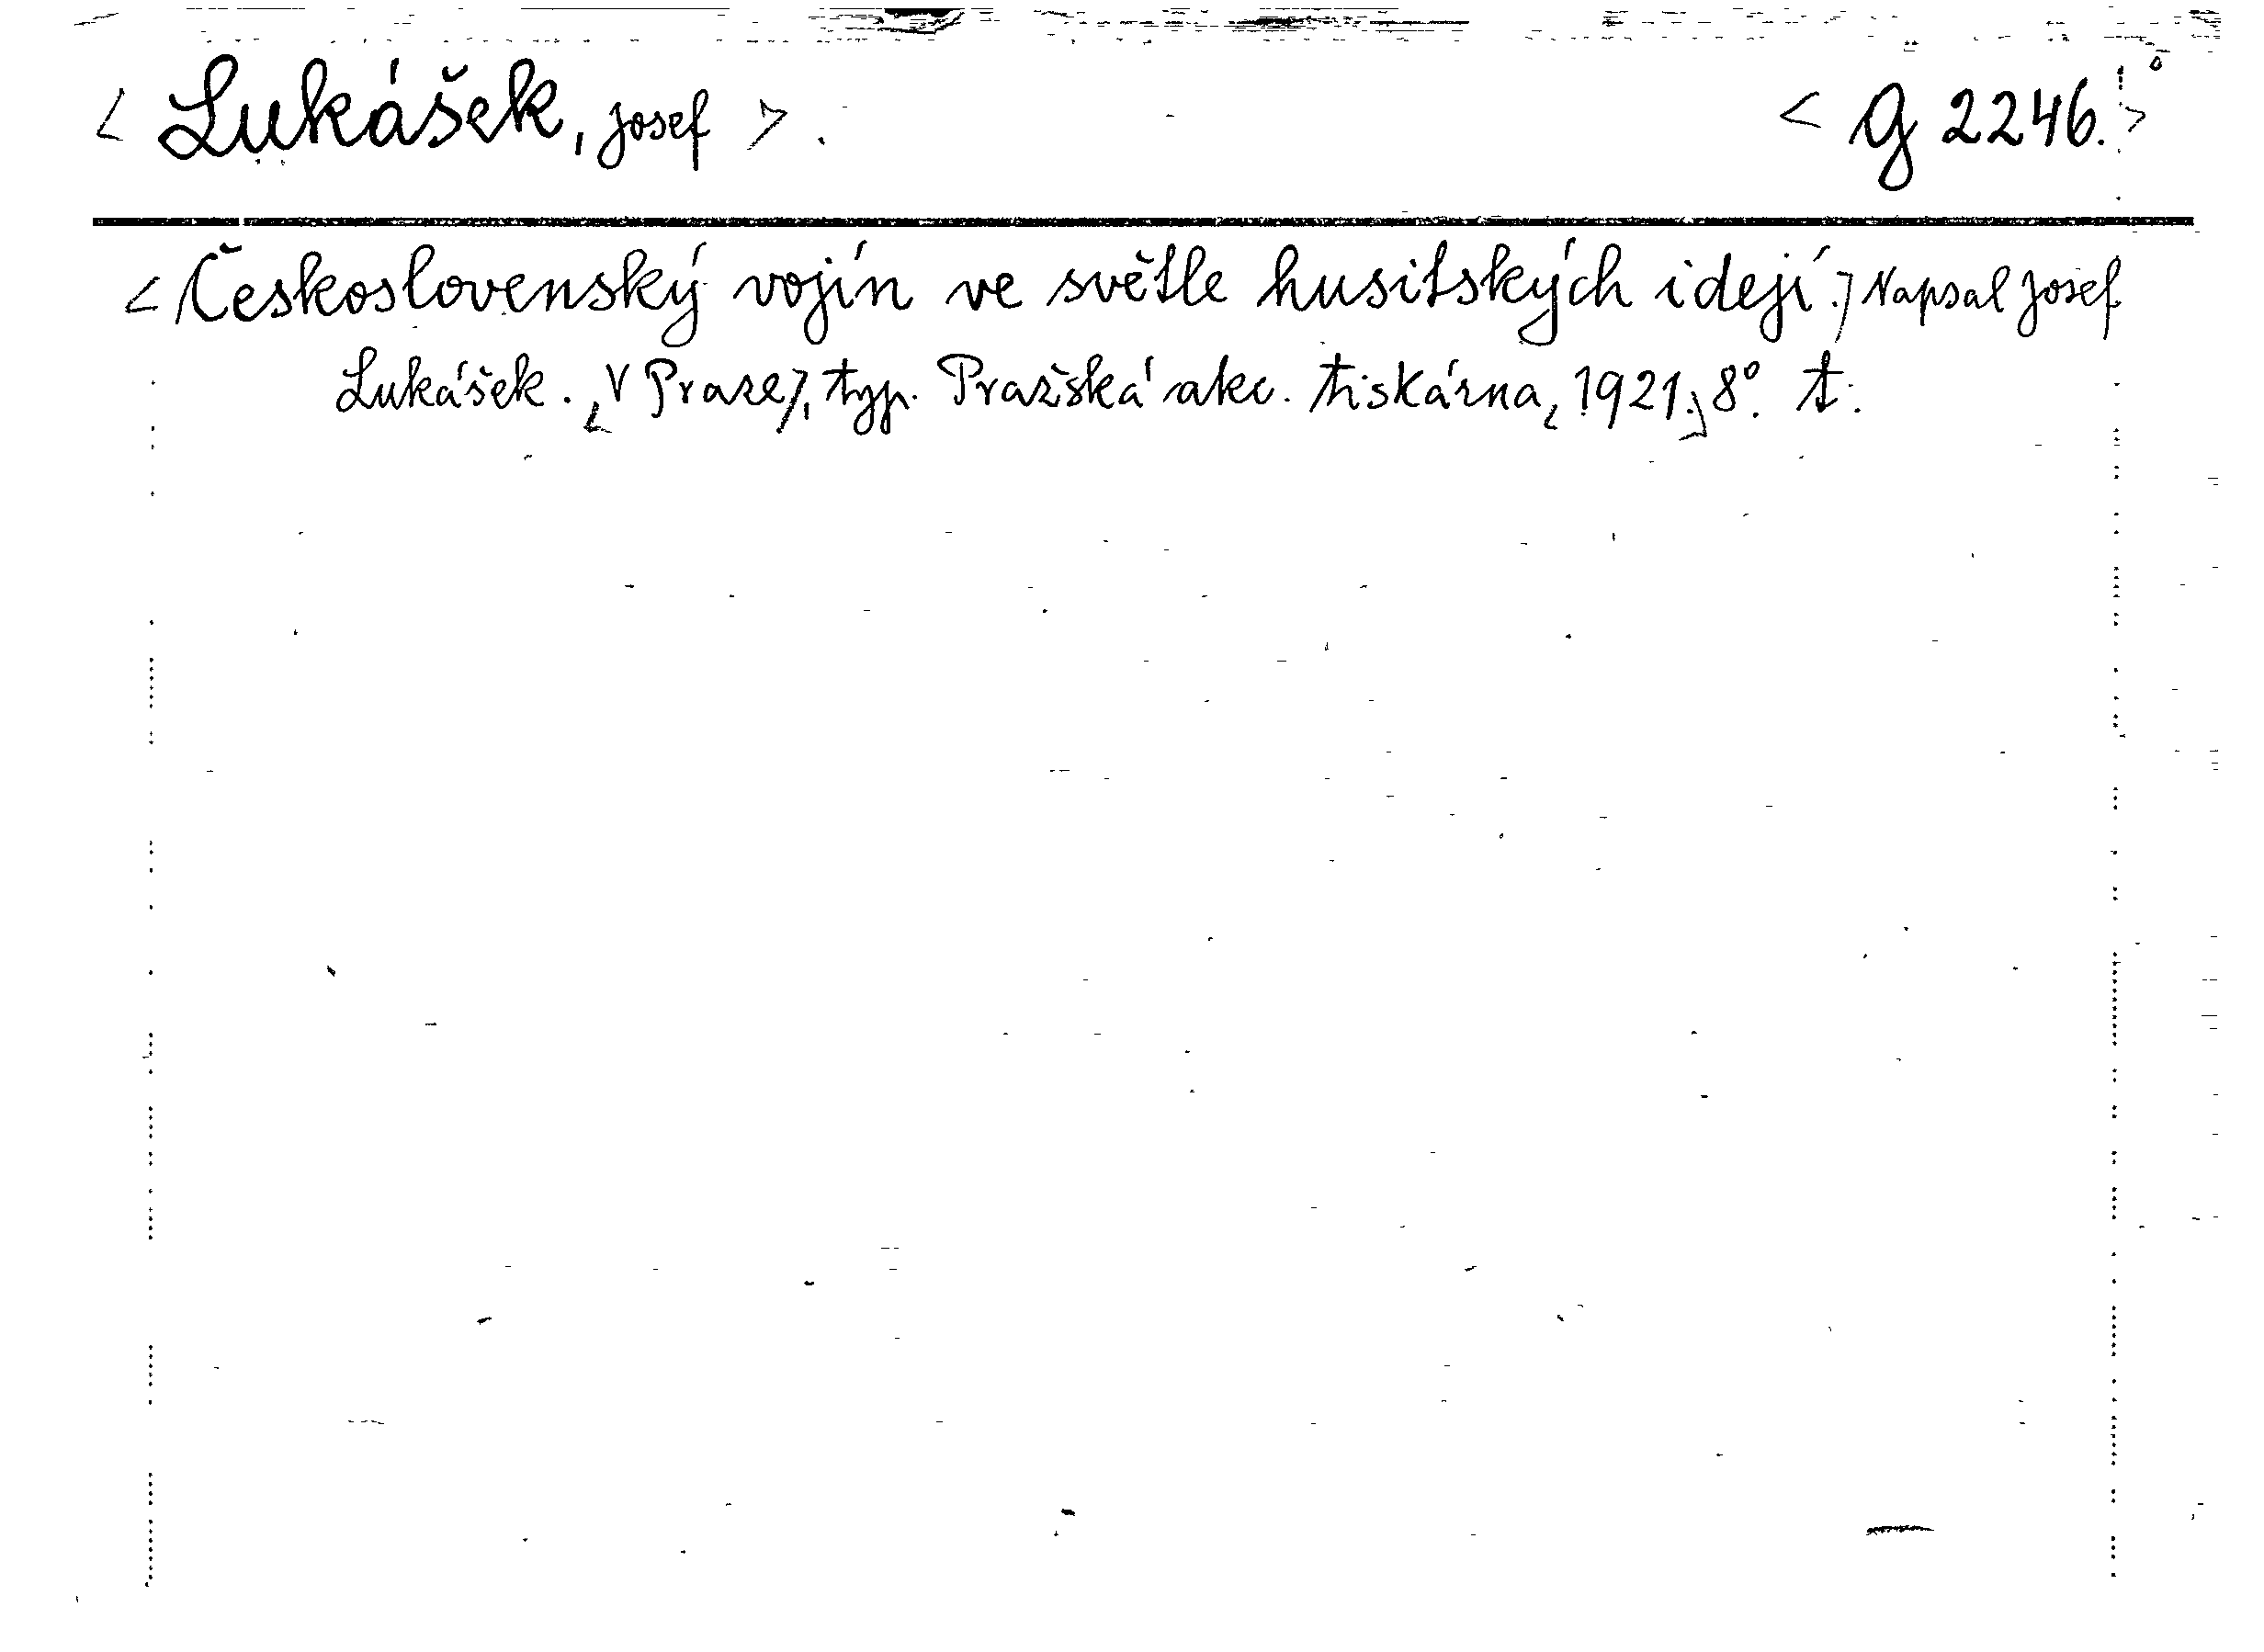 < Lukášek, Josef > . < G 2246. >
< Československý vojín ve světle husitských idejí. > Napsal Josef
Lukášek. < V Praze >, typ. Pražská akc. tiskárna, < 1921. > 8°. t.